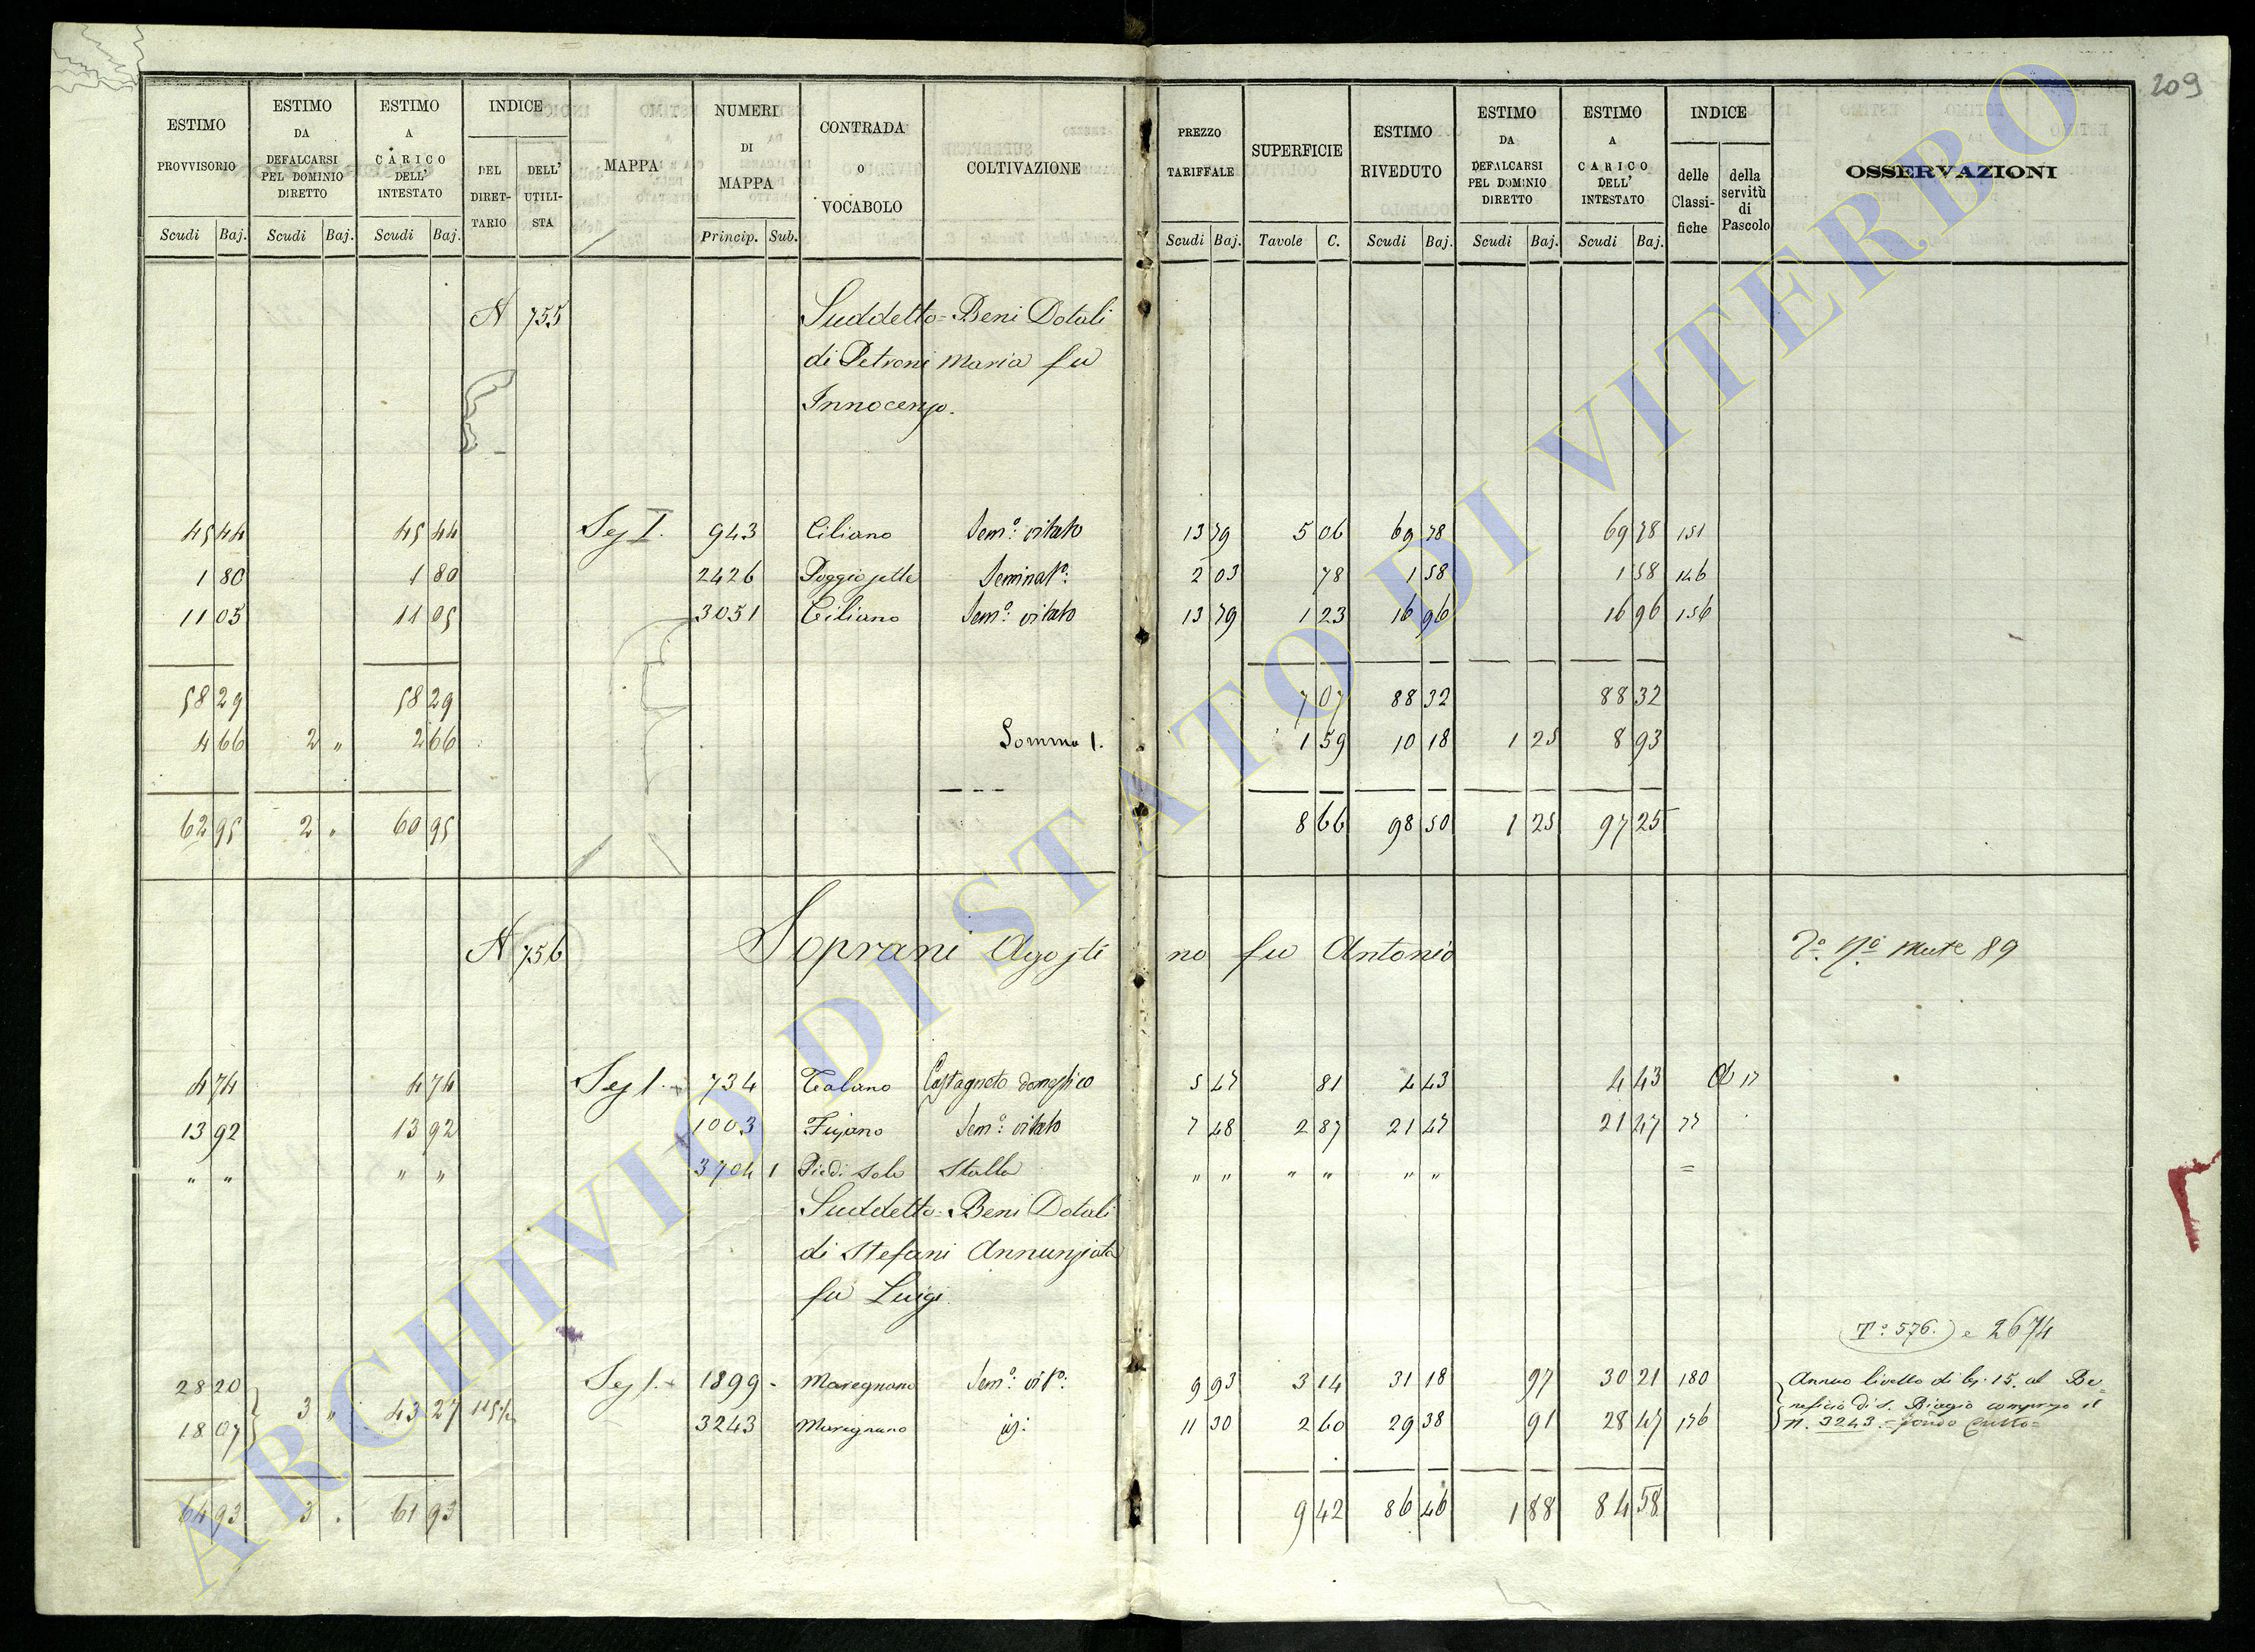 209
ESTIMO PROVVISORIO Scudi Baj.
ESTIMO DA DEFALCARSI PEL DOMINIO DIRETTO Scudi Baj.
ESTIMO A CARICO DELL' INTESTATO Scudi Baj.
INDICE DEL DIRETTARIO DELL' UTILISTA
MAPPA
NUMERI DI MAPPA Princip. Sub.
CONTRADA O VOCABOLO
COLTIVAZIONE
PREZZO TARIFFALE Scudi Baj.
SUPERFICIE Tavole C.
ESTIMO RIVEDUTO Scudi Baj.
ESTIMO DA DEFALCARSI PEL DOMINIO DIRETTO Scudi Baj.
ESTIMO A CARICO DELL' INTESTATO Scudi Baj.
INDICE delle Classifiche della servitù di Pascolo
OSSERVAZIONI
N 755 Suddetto = Beni Dotali
di Petroni Maria fu
Innocenzo.
45 44 45 44 Sez I. 943 Ciliano Sem.º vitato 13 79 5 06 69 78 69 78 151
1 80 1 80 2426 Seminat.º 2 03 78 1 58 1 58 146
11 05 11 05 3051 Ciliano Sem.º vitato 13 79 1 23 16 96 16 96 156
58 29 58 29 7 07 88 32 88 32
4 66 2 " 2 66 Somma 1. 1 59 10 18 1 25 8 93
62 95 2 " 60 95 8 66 98 50 1 25 97 25
N 756 Soprani Agostino fu Antonio 89
4 74 4 74 Sez I. 734 Talano Castagneto domestico 5 47 81 4 43 4 43 17
13 92 13 92 1003 Fujano Sem.º vitato 7 48 2 87 21 47 21 47 77
" " " " 3704 1 Stalla " " " " " " =
Suddetto = Beni Dotali
di Stefani Annunziata
fu Luigi.
(T.º 576.) e 2674
28 20 Sez I. 1899 Maregnano Sem.º vit.º 9 93 3 14 31 18 97 30 21 180 Annuo livello di 15. al Be=
3 " 43 27 neficio di S. Biagio compreso il
18 07 3243 Maregnano id: 11 30 2 60 29 38 91 28 47 176 N. 3243. = fondo
64 93 3 . 61 93 9 42 86 46 1 88 84 58
ARCHIVIO DI STATO DI VITERBO